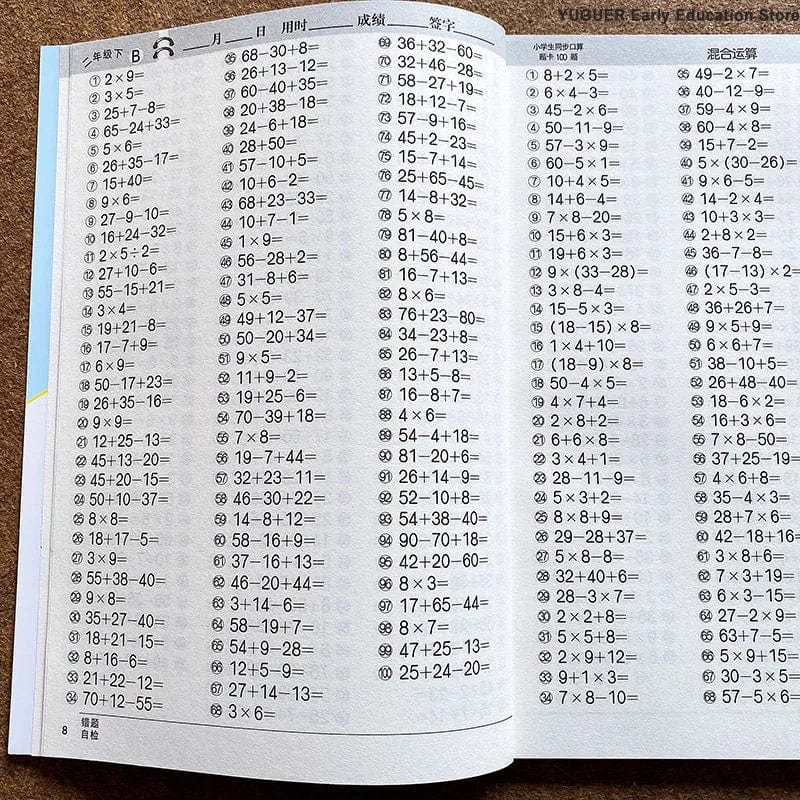 YUGUER Early Education Store
二年级下 B 月 日 用时 成绩 签字
① 2×9=
② 3×5=
③ 25+7−8=
④ 65−24+33=
⑤ 5×6=
⑥ 26+35−17=
⑦ 15+40=
⑧ 9×6=
⑨ 27−9−10=
⑩ 16+24−32=
⑪ 2×5÷2=
⑫ 27+10−6=
⑬ 55−15+21=
⑭ 3×4=
⑮ 19+21−8=
⑯ 17−7+9=
⑰ 6×9=
⑱ 50−17+23=
⑲ 26+35−16=
⑳ 9×9=
㉑ 12+25−13=
㉒ 45+13−20=
㉓ 45+20−15=
㉔ 50+10−37=
㉕ 8×8=
㉖ 18+17−5=
㉗ 3×9=
㉘ 55+38−40=
㉙ 9×8=
㉚ 35+27−40=
㉛ 18+21−15=
㉜ 8+16−6=
㉝ 21+22−12=
㉞ 70+12−55=
㉟ 68−30+8=
㊱ 26+13−12=
㊲ 60−40+35=
㊳ 20+38−18=
㊴ 24−6+18=
㊵ 28+50=
㊶ 57−10+5=
㊷ 10+6−2=
㊸ 68+23−33=
㊹ 10+7−1=
㊺ 1×9=
㊻ 56−28+2=
㊼ 31−8+6=
㊽ 5×5=
㊾ 49+12−37=
㊿ 50−20+34=
51 9×5=
52 11+9−2=
53 19+25−6=
54 70−39+18=
55 7×8=
56 19−7+44=
57 32+23−11=
58 46−30+22=
59 14−8+12=
60 58−16+9=
61 37−16+13=
62 46−20+44=
63 3+14−6=
64 58−19+7=
65 54+9−28=
66 12+5−9=
67 27+14−13=
68 3×6=
69 36+32−60=
70 32+46−28=
71 58−27+19=
72 18+12−7=
73 57−9+16=
74 45+2−23=
75 15−7+14=
76 25+65−45=
77 14−8+32=
78 5×8=
79 81−40+8=
80 8+56−44=
81 16−7+13=
82 8×6=
83 76+23−80=
84 34−23+8=
85 26−7+13=
86 13+5−8=
87 16−8+7=
88 4×6=
89 54−4+18=
90 81−20+6=
91 26+14−9=
92 52−10+8=
93 54+38−40=
94 90−70+18=
95 42+20−60=
96 8×3=
97 17+65−44=
98 8×7=
99 47+25−13=
100 25+24−20=
8 错题
自检
小学生同步口算
题卡100题
混合运算
① 8+2×5=
② 6×4−3=
③ 45−2×6=
④ 50−11−9=
⑤ 57−3×9=
⑥ 60−5×1=
⑦ 10+4×5=
⑧ 14+6−4=
⑨ 7×8−20=
⑩ 15+6×3=
⑪ 19+6×3=
⑫ 9×(33−28)=
⑬ 3×8−4=
⑭ 15−5×3=
⑮ (18−15)×8=
⑯ 1×4+10=
⑰ (18−9)×8=
⑱ 50−4×5=
⑲ 4×7+4=
⑳ 2×8+2=
㉑ 6+6×8=
㉒ 3×4+1=
㉓ 28−11−9=
㉔ 5×3+2=
㉕ 8×8+9=
㉖ 29−28+37=
㉗ 5×8−8=
㉘ 32+40+6=
㉙ 28−3×7=
㉚ 2×2+8=
㉛ 5×5+8=
㉜ 2×9+12=
㉝ 9+1×3=
㉞ 7×8−10=
㉟ 49−2×7=
㊱ 40−12−9=
㊲ 59−4×9=
㊳ 60−4×8=
㊴ 15+7−2=
㊵ 5×(30−26)=
㊶ 9×6−5=
㊷ 14−2×4=
㊸ 10+3×3=
㊹ 2+8×2=
㊺ 36−7−8=
㊻ (17−13)×2=
㊼ 2×5−3=
㊽ 36+26+7=
㊾ 9×5+9=
㊿ 6×6+7=
51 38−10+5=
52 26+48−40=
53 18−6×2=
54 16+3×6=
55 7×8−50=
56 37+25−19=
57 4×6+8=
58 35−4×3=
59 28+7×6=
60 42−18+16=
61 3×8+6=
62 7×3+19=
63 6×3−15=
64 27−2×9=
65 63+7−5=
66 5×9+15=
67 30−3×5=
68 57−5×6=